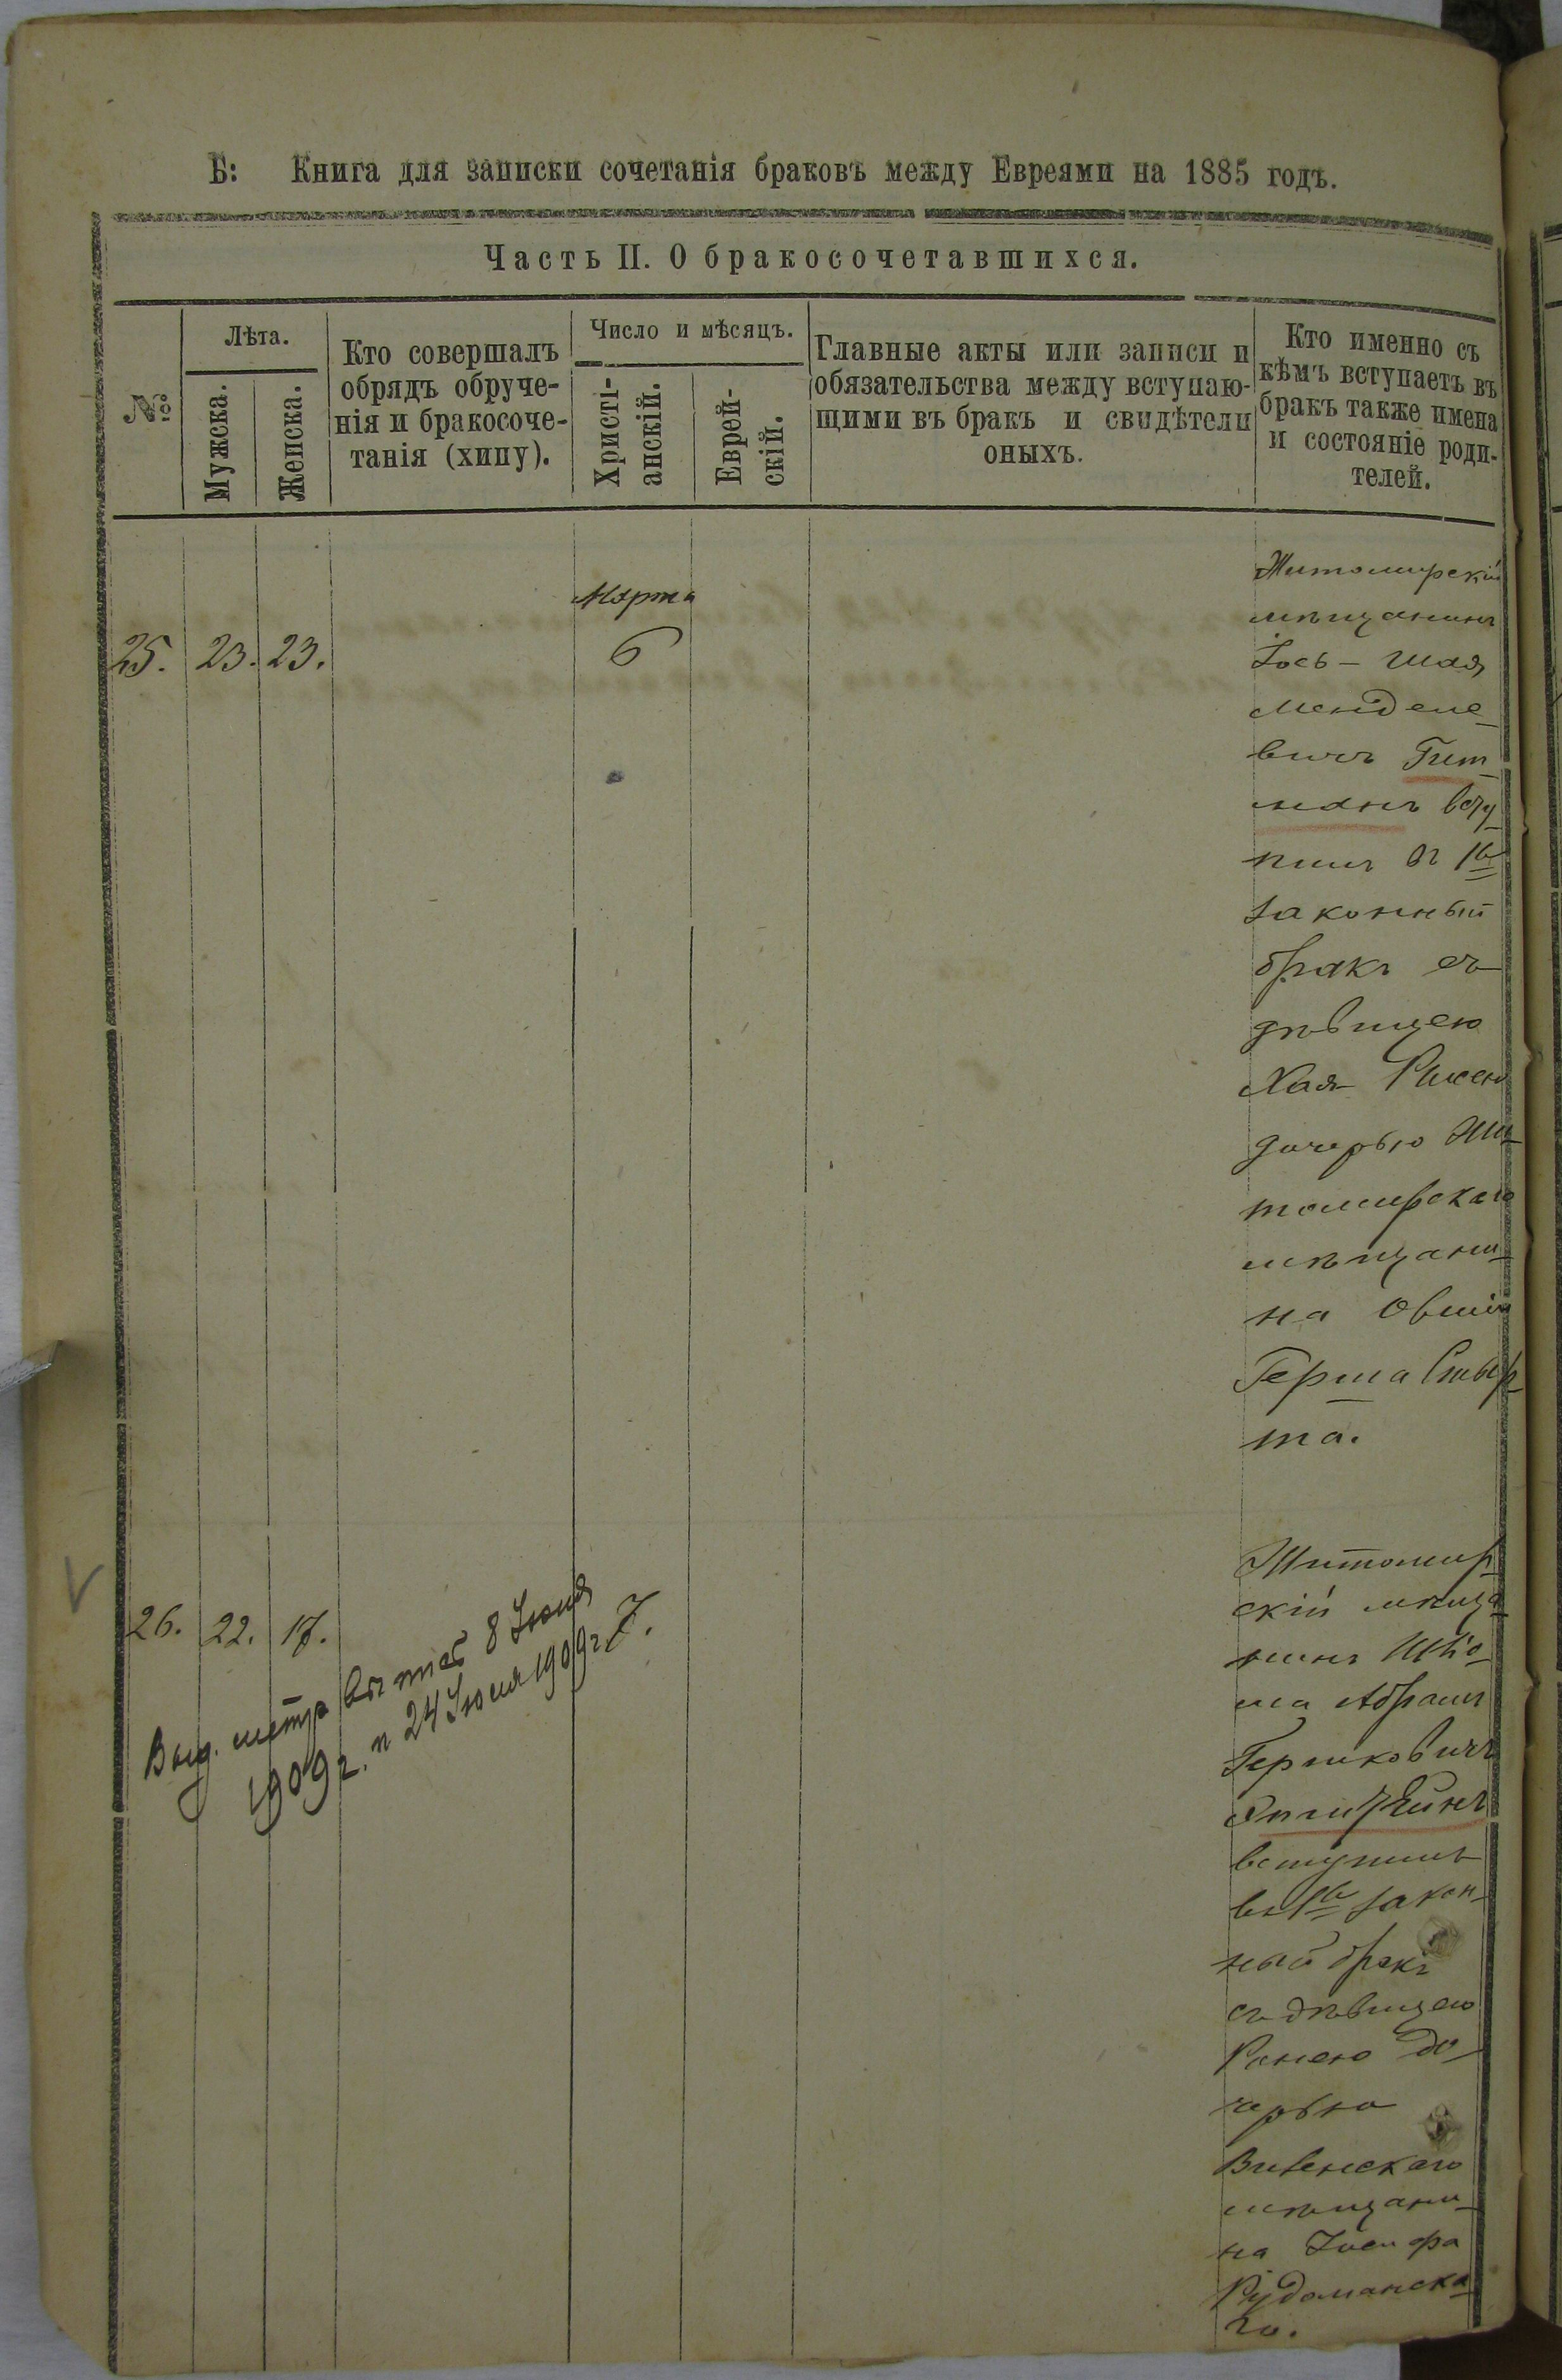 Б: Книга для записки сочетанія браковъ между Евреями на 1885 годъ.
Часть II. О бракосочетавшихся.
№
Лѣта.
Мужска.
Женска.
Кто совершалъ
обрядъ обруче-
нія и бракосоче-
танія (хипу).
Число и мѣсяцъ.
Христі-
анскій.
Еврей-
скій.
Главные акты или записи и
обязательства между вступаю-
щими въ бракъ и свидѣтели
оныхъ.
Кто именно съ
кѣмъ вступаетъ въ
бракъ также имена
и состояніе роди-
телей.
Марта
25. 23. 23. 6
Житомирскій
мѣщанинъ
Іось - Шая
Менделе-
вичъ Гит-
манъ всту-
пилъ въ 1й
законный
бракъ съ
дѣвицею
Хая
дочерью Жи-
томирскаго
мѣщани-
на Овшія
Герша
та.
26. 22. 17. 7.
Выд. метр 8 Іюня
1909 г. и 24 Іюня 1909 г.
Житомир-
скій мѣща-
нинъ
ма Абрамъ
Гершковичъ
вступилъ
въ 1й закон-
ный бракъ
съ дѣвицею
до-
черью
Виленскаго
мѣщани-
на Іосифа
Рудоманска-
го.